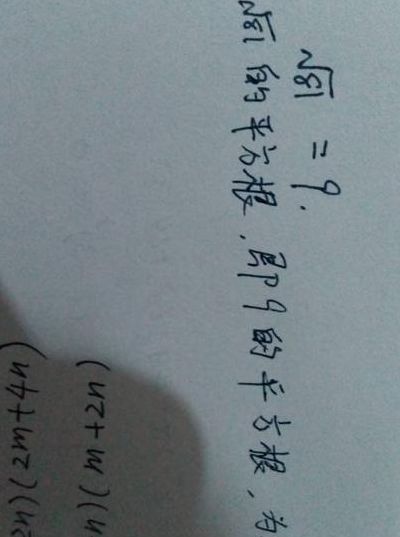 √81 = 9.
√81 的平方根,即9的平方根,为
m+2n)
2m+4n)